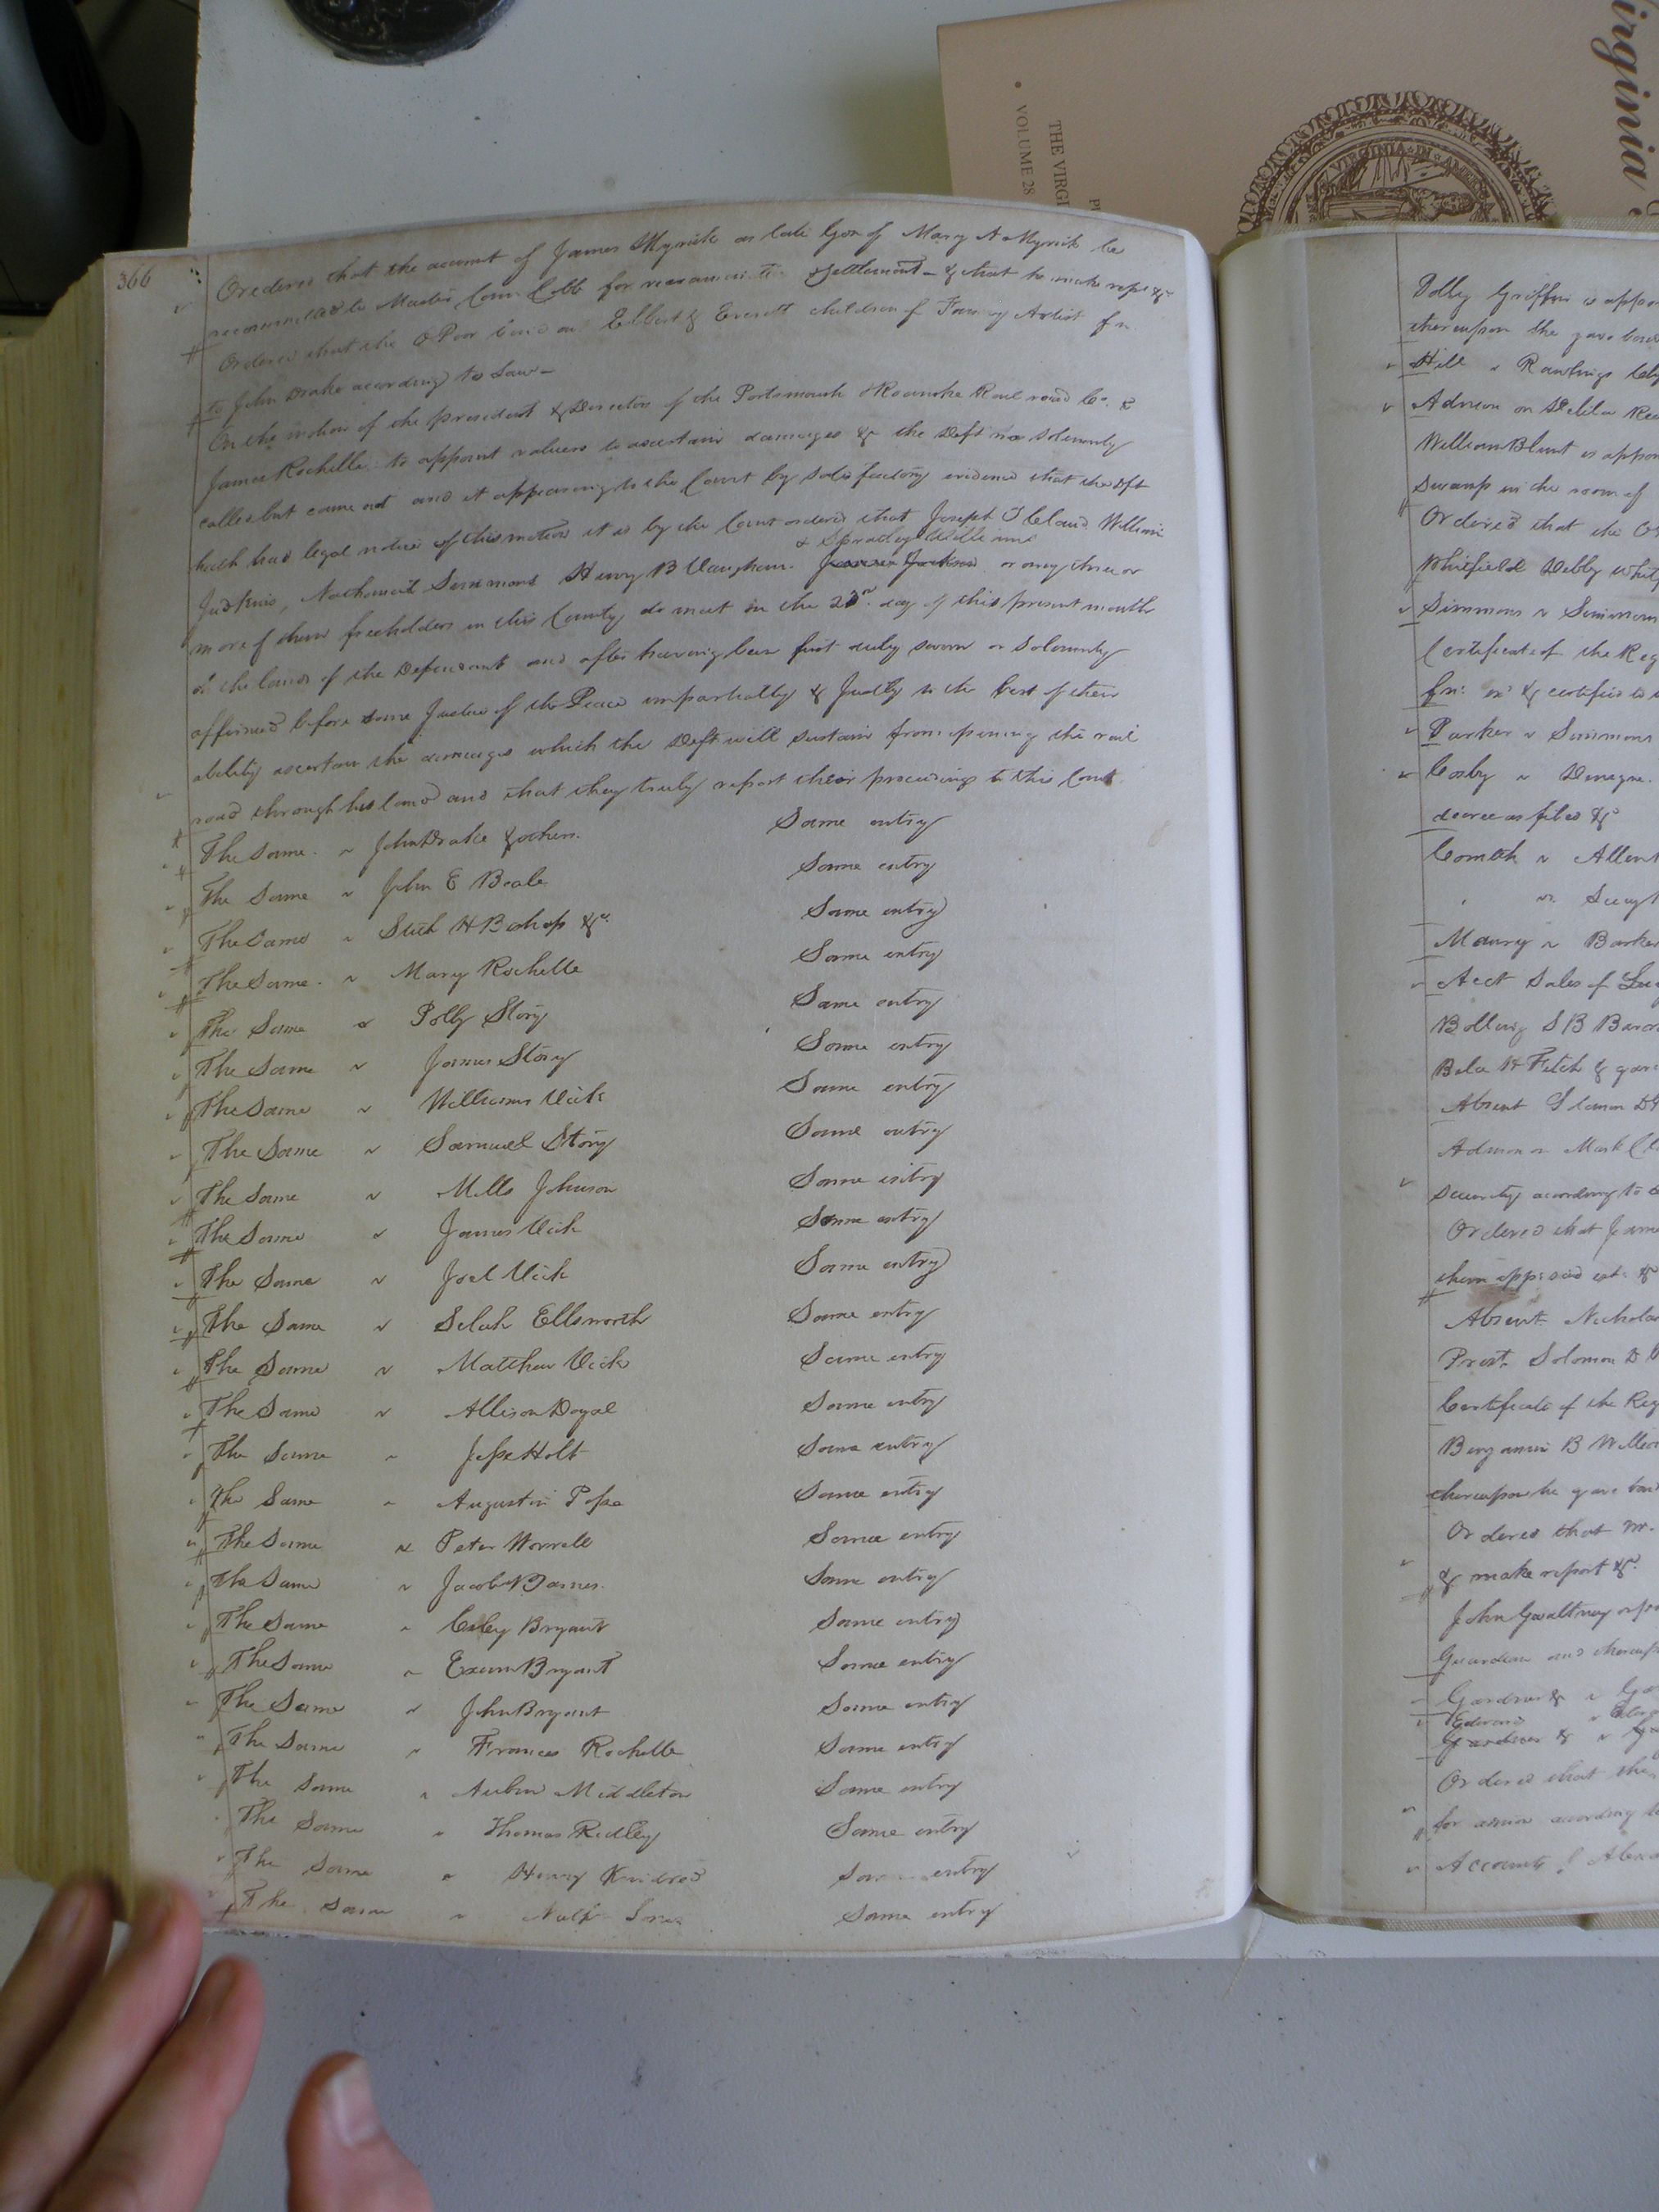 Virginia
THE VIRGI
VOLUME 28
VIRGINIA
366
Ordered that the account of James Myrick as late Gdn of Mary A Myrick be
recommitted to Master Com. Cobb for reexamination & settlement - & that he make report &c
Ordered that the O Poor bind out Elbert & Everett children of Artist fn.
to John Drake according to Law -
On the motion of the president & Directors of the Portsmouth & Roanoke Rail road Co. &
James Rochelle to appoint valuers to ascertain damages &c the Deft was solemnly
called but came not and it appearing to the Court by satisfactory evidence that the Dft
hath had legal notice of this motion it is by the Court ordered that Joseph T Claud, William
& Spradley Williams
Judkins, Nathaniel Simmons Henry B Vaughan. James Jackson or any three or
more of them freeholders in this County do meet on the 23rd. day of this present month
on the lands of the Defendant and after having been first duly sworn or solemnly
affirmed before some Justice of the Peace impartially & Justly to the best of their
ability ascertain the damages which the Deft will sustain from opening the rail
road through his land and that they truly report their proceedings to this Court
The Same. v John Drake & others. Same entry
The Same v John E Beale Same entry
The Same v H Bishop &c. Same entry
The Same. v Mary Rochelle Same entry
The Same v Polly Story Same entry
The Same v James Story Same entry
The Same v Williams Vick Same entry
The Same v Samuel Story Same entry
The Same v Mills Johnson Same entry
The Same v James Vick Same entry
The Same v Joel Vick Same entry
The Same v Selah Ellsworth Same entry
The Same v Matthew Vick Same entry
The Same v Allison Doyal Same entry
The Same v Jesse Holt Same entry
The Same v Augustin Pope Same entry
The Same v Peter Worrell Same entry
The Same v Jacob Barnes. Same entry
The Same v Coley Bryant Same entry
The Same v Exum Bryant Same entry
The Same v John Bryant Same entry
The Same v Frances Rochelle Same entry
The Same v Middleton Same entry
The Same v Thomas Ridley Same entry
The Same v Henry Kindred Same entry
The Same v Same entry
Dolly Griffin is
thereupon she gave bond
Hill v Rawlings
Admon on
William Blunt is
Swamp in the room of
Ordered that the
Whitfield Debby
Simmons v Simmons
Certificate of the Reg
fn: &c certified
Parker v Simmons
Cosby v
decree as filed &c
Comwth v Allen
vs.
Maury v Barker
Acct Sales of
Bolling S B
Bela H Fitch &
Absent
Admon v
security according to
Ordered that James
them appraise est: &c
Absent Nicholas
Prest. Solomon D
Certificate of the Reg
Benjamin B
thereupon he gave
Ordered that
& make report &c.
John Gwaltney
Guardian and
Gardner & v
Edwards v
Gardner & v
Ordered that the
for according
Accounts of